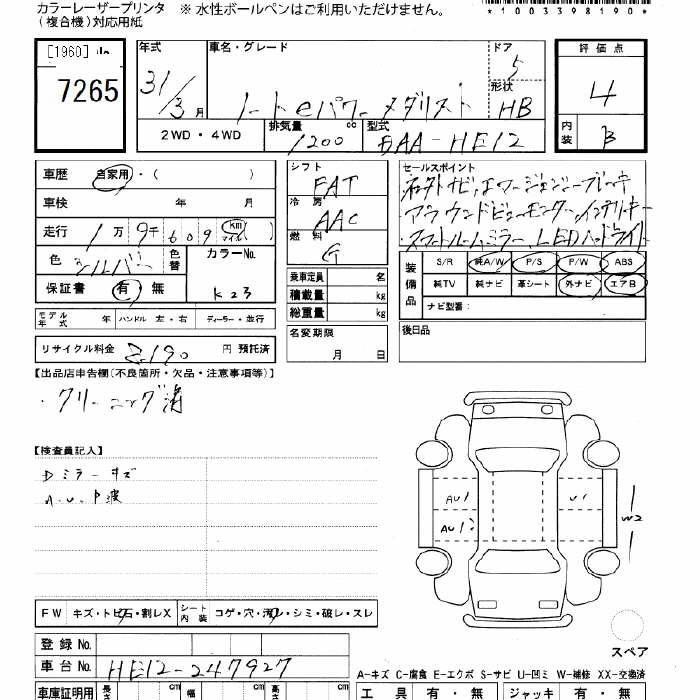 カラーレーザープリンタ ※ 水性ボールペンはご利用いただけません。
(複合機)対応用紙
*1003398190*
[1960]
7265
年式 31/3月
車名・グレード
ノート eパワー メダリスト
ドア 5
形状 HB
評価点 4
内装 B
2WD・4WD
排気量 1200 cc
型式 DAA-HE12
車歴 自家用・( )
車検 年 月
走行 1万 9千 609 km マイル )
色 シルバー 色替
カラーNo. K23
保証書 有・無
モデル年式 年 ハンドル 左・右 ディーラー・並行
リサイクル料金 円 預託済
シフト FAT
冷房 AAC
燃料 G
乗車定員 名
積載量 kg
総重量 kg
名変期限
月 日
セールスポイント
・アラウンドビューモニター、インテリキー
・スマートルームミラー、LEDヘッドライト
装備品
S/R 純A/W P/S P/W ABS
純TV 純ナビ 革シート 外ナビ エアB
ナビ型番:
後日品
【出品店申告欄(不良箇所・欠品・注意事項等)】
・クリーニング済
【検査員記入】
Dミラーキズ
A.U.中波
AU1 U1
AU1 W2
スペア
FW キズ・トビ石・割レX シート内装 コゲ・穴・汚レ・シミ・破レ・スレ
登録No.
車台No. HE12-247927
A-キズ C-腐食 E-エクボ S-サビ U-凹ミ W-補修 XX-交換済
車庫証明用 長さ cm 幅 cm 高さ cm
工具 有・無 ジャッキ 有・無